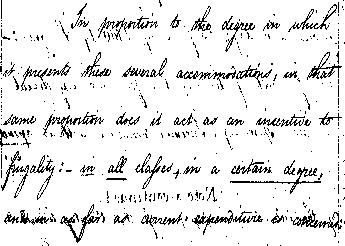 In proportion to the degree in which
it presents these several accommodations, in that
same proportion does it act as an incentive to
frugality:- in all classes, in a certain degree,
as far as current expenditure is